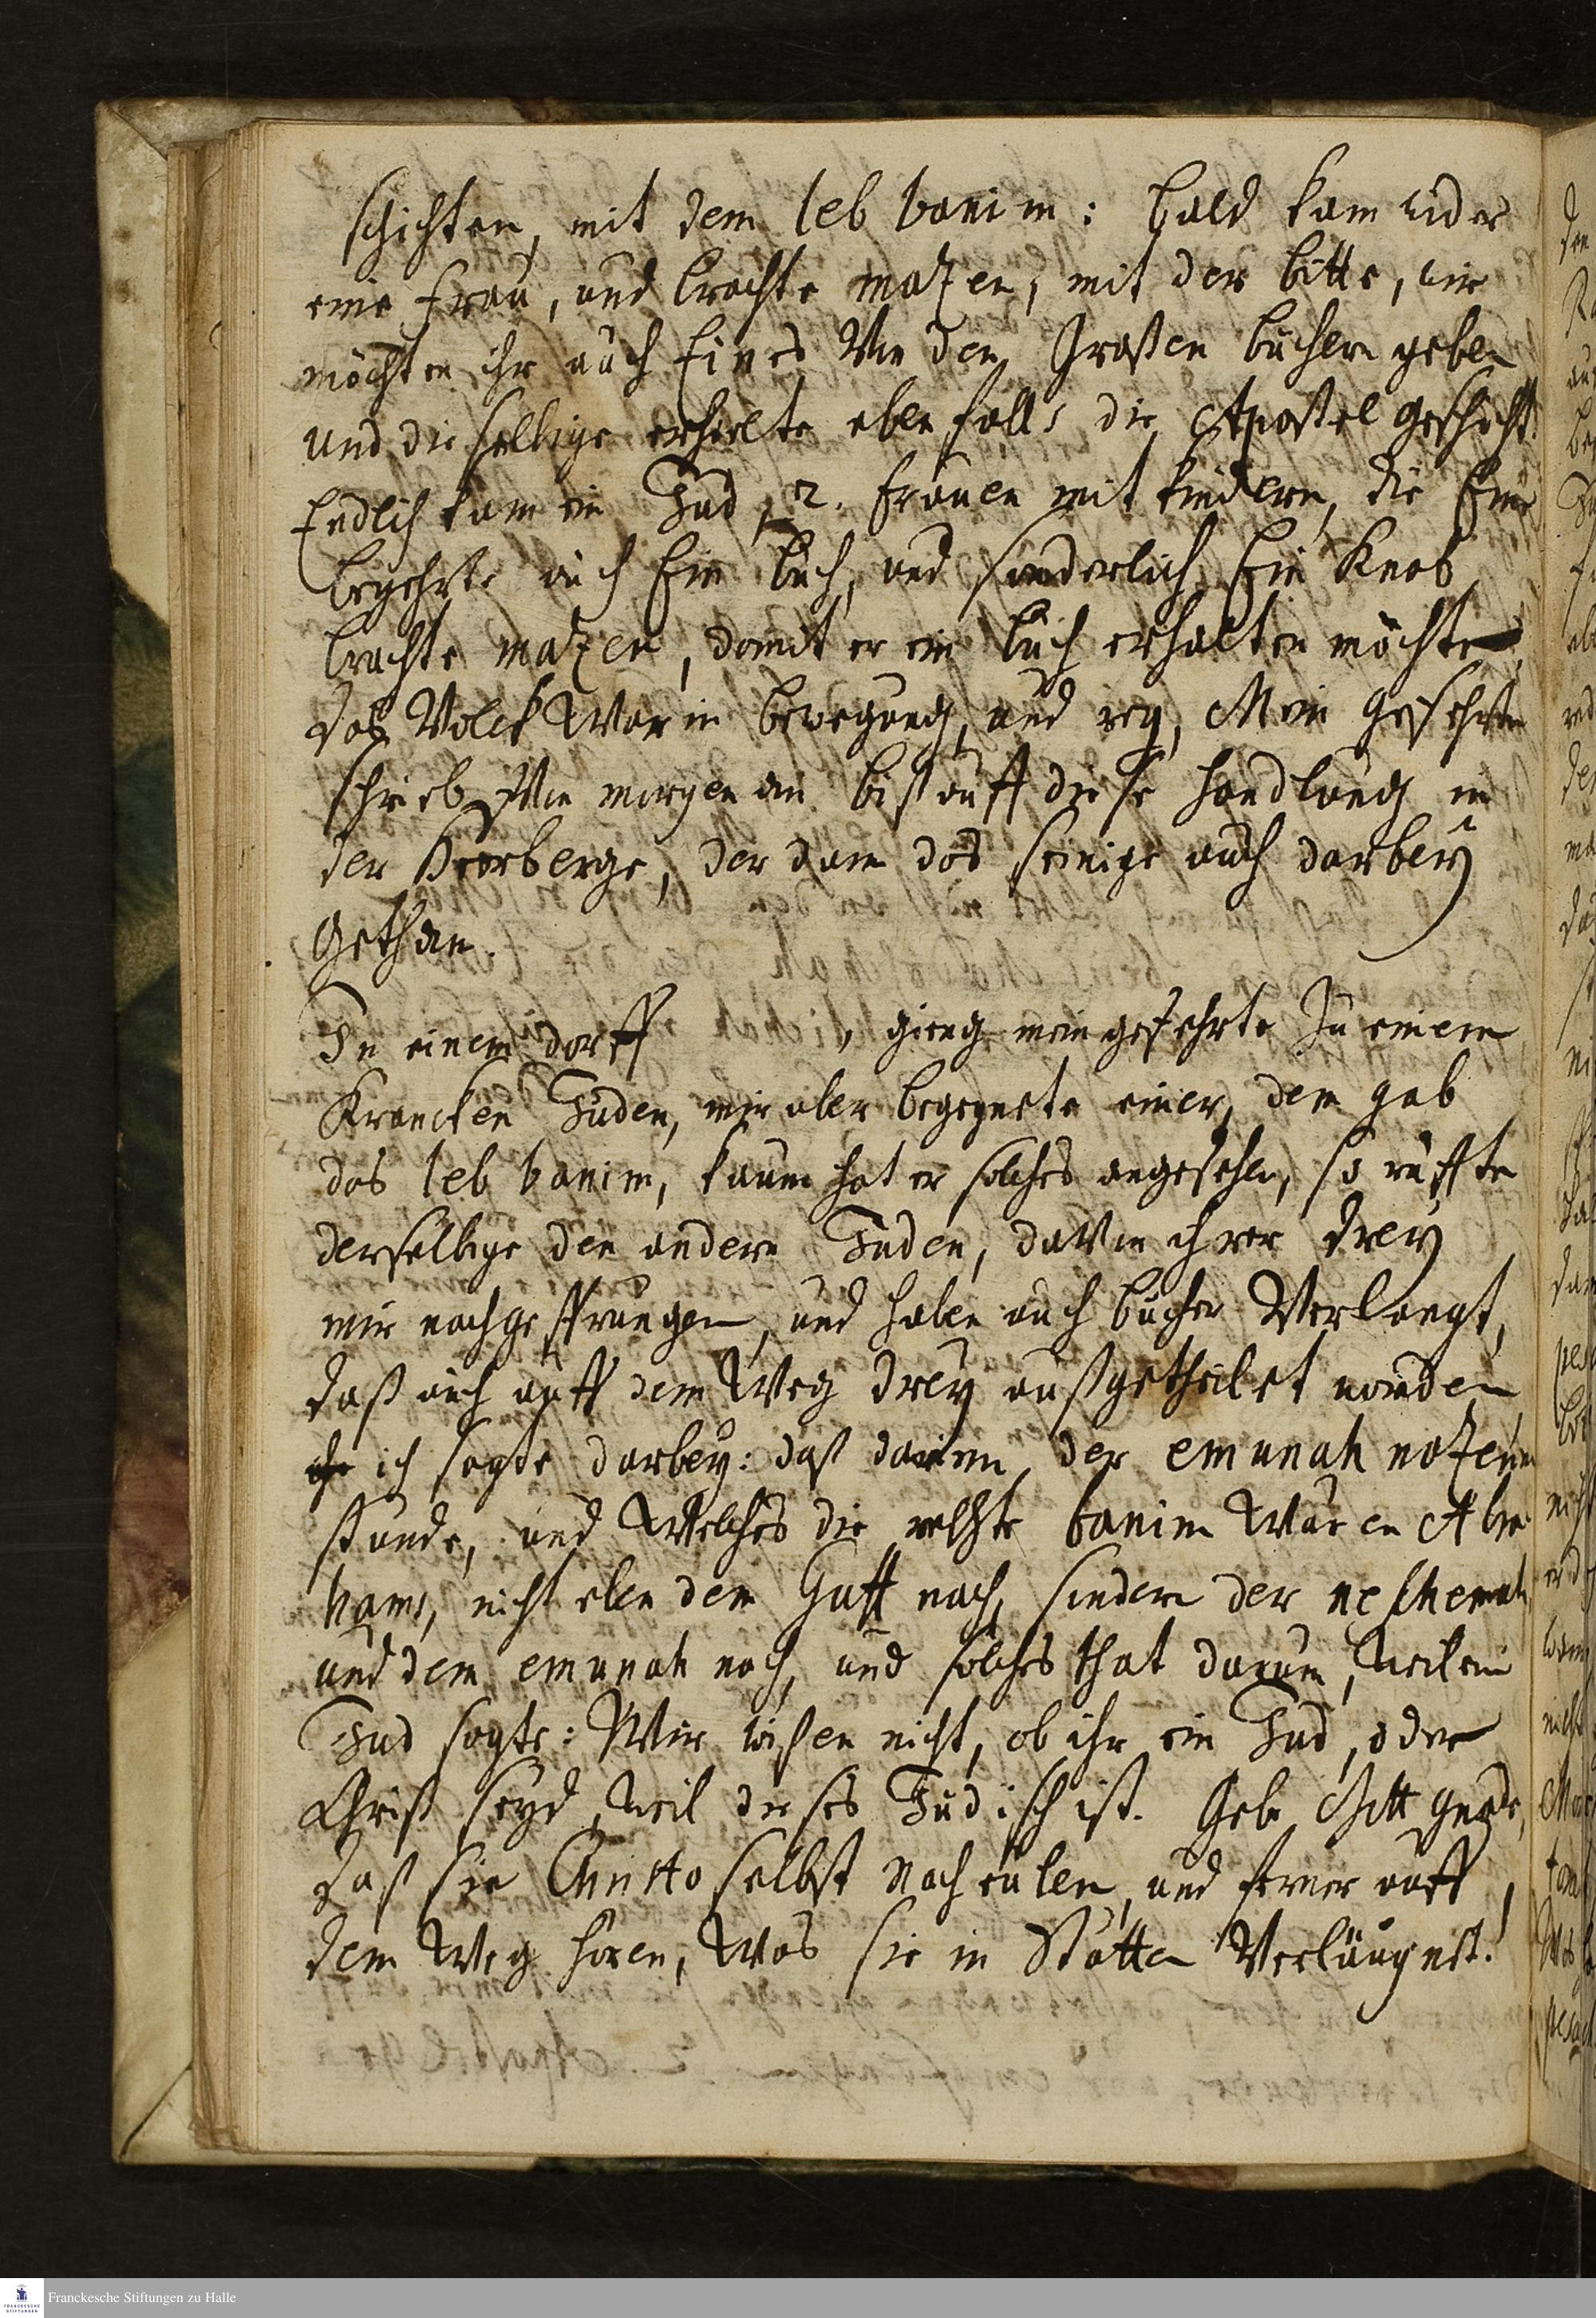 schichten, mit dem leb banim: bald kam wider
eine Frau, und brachte mazen, mit der bitte, wir
möchten ihr auch Eines von den Großen büchern geben
und dieselbige erhielte eben falls die Apostel geschicht.
Endlich kam ein Jud, 2. Frauen mit kindern, die Eine
begehrte auch Ein buch, und sonderlich Ein Knab
brachte mazen, damit er ein buch erhalten möchte,
das Volck war in bewegung, und reg, Mein Gefehrte
schrieb von morgen an biß auff diese handlung in
der Heerberge, der dann das seinige auch darbey
Gethan.
In einem dorff , gieng mein gefehrte zu einem
Krancken Juden, mir aber begegnete einer, dem gab
das leb banim, kaum hat er solches angesehen, so ruffte
derselbige den andern Juden, davon ihrer drey
mir nachgesprungen, und haben auch bücher Verlangt,
daß auch auff dem Weg drey außgetheilet worden,
ich sagte darbey: daß darinn der emunah
stunde, und welches die rechte banim wären Abra
hams, nicht eben dem Guff nach, sondern der neschemah
und dem emunah nach, und solches that darum, weil ein
Jud sagte: Wir wißen nicht, ob ihr ein Jud, oder
Christ seyd, weil dieses Jüdisch ist. Gebe Gott gnade,
daß sie Christo selbst nach eülen, und ferner auff
dem Weg hören, Was sie in Stätten Verläugnet!
Franckesche Stiftungen zu Halle